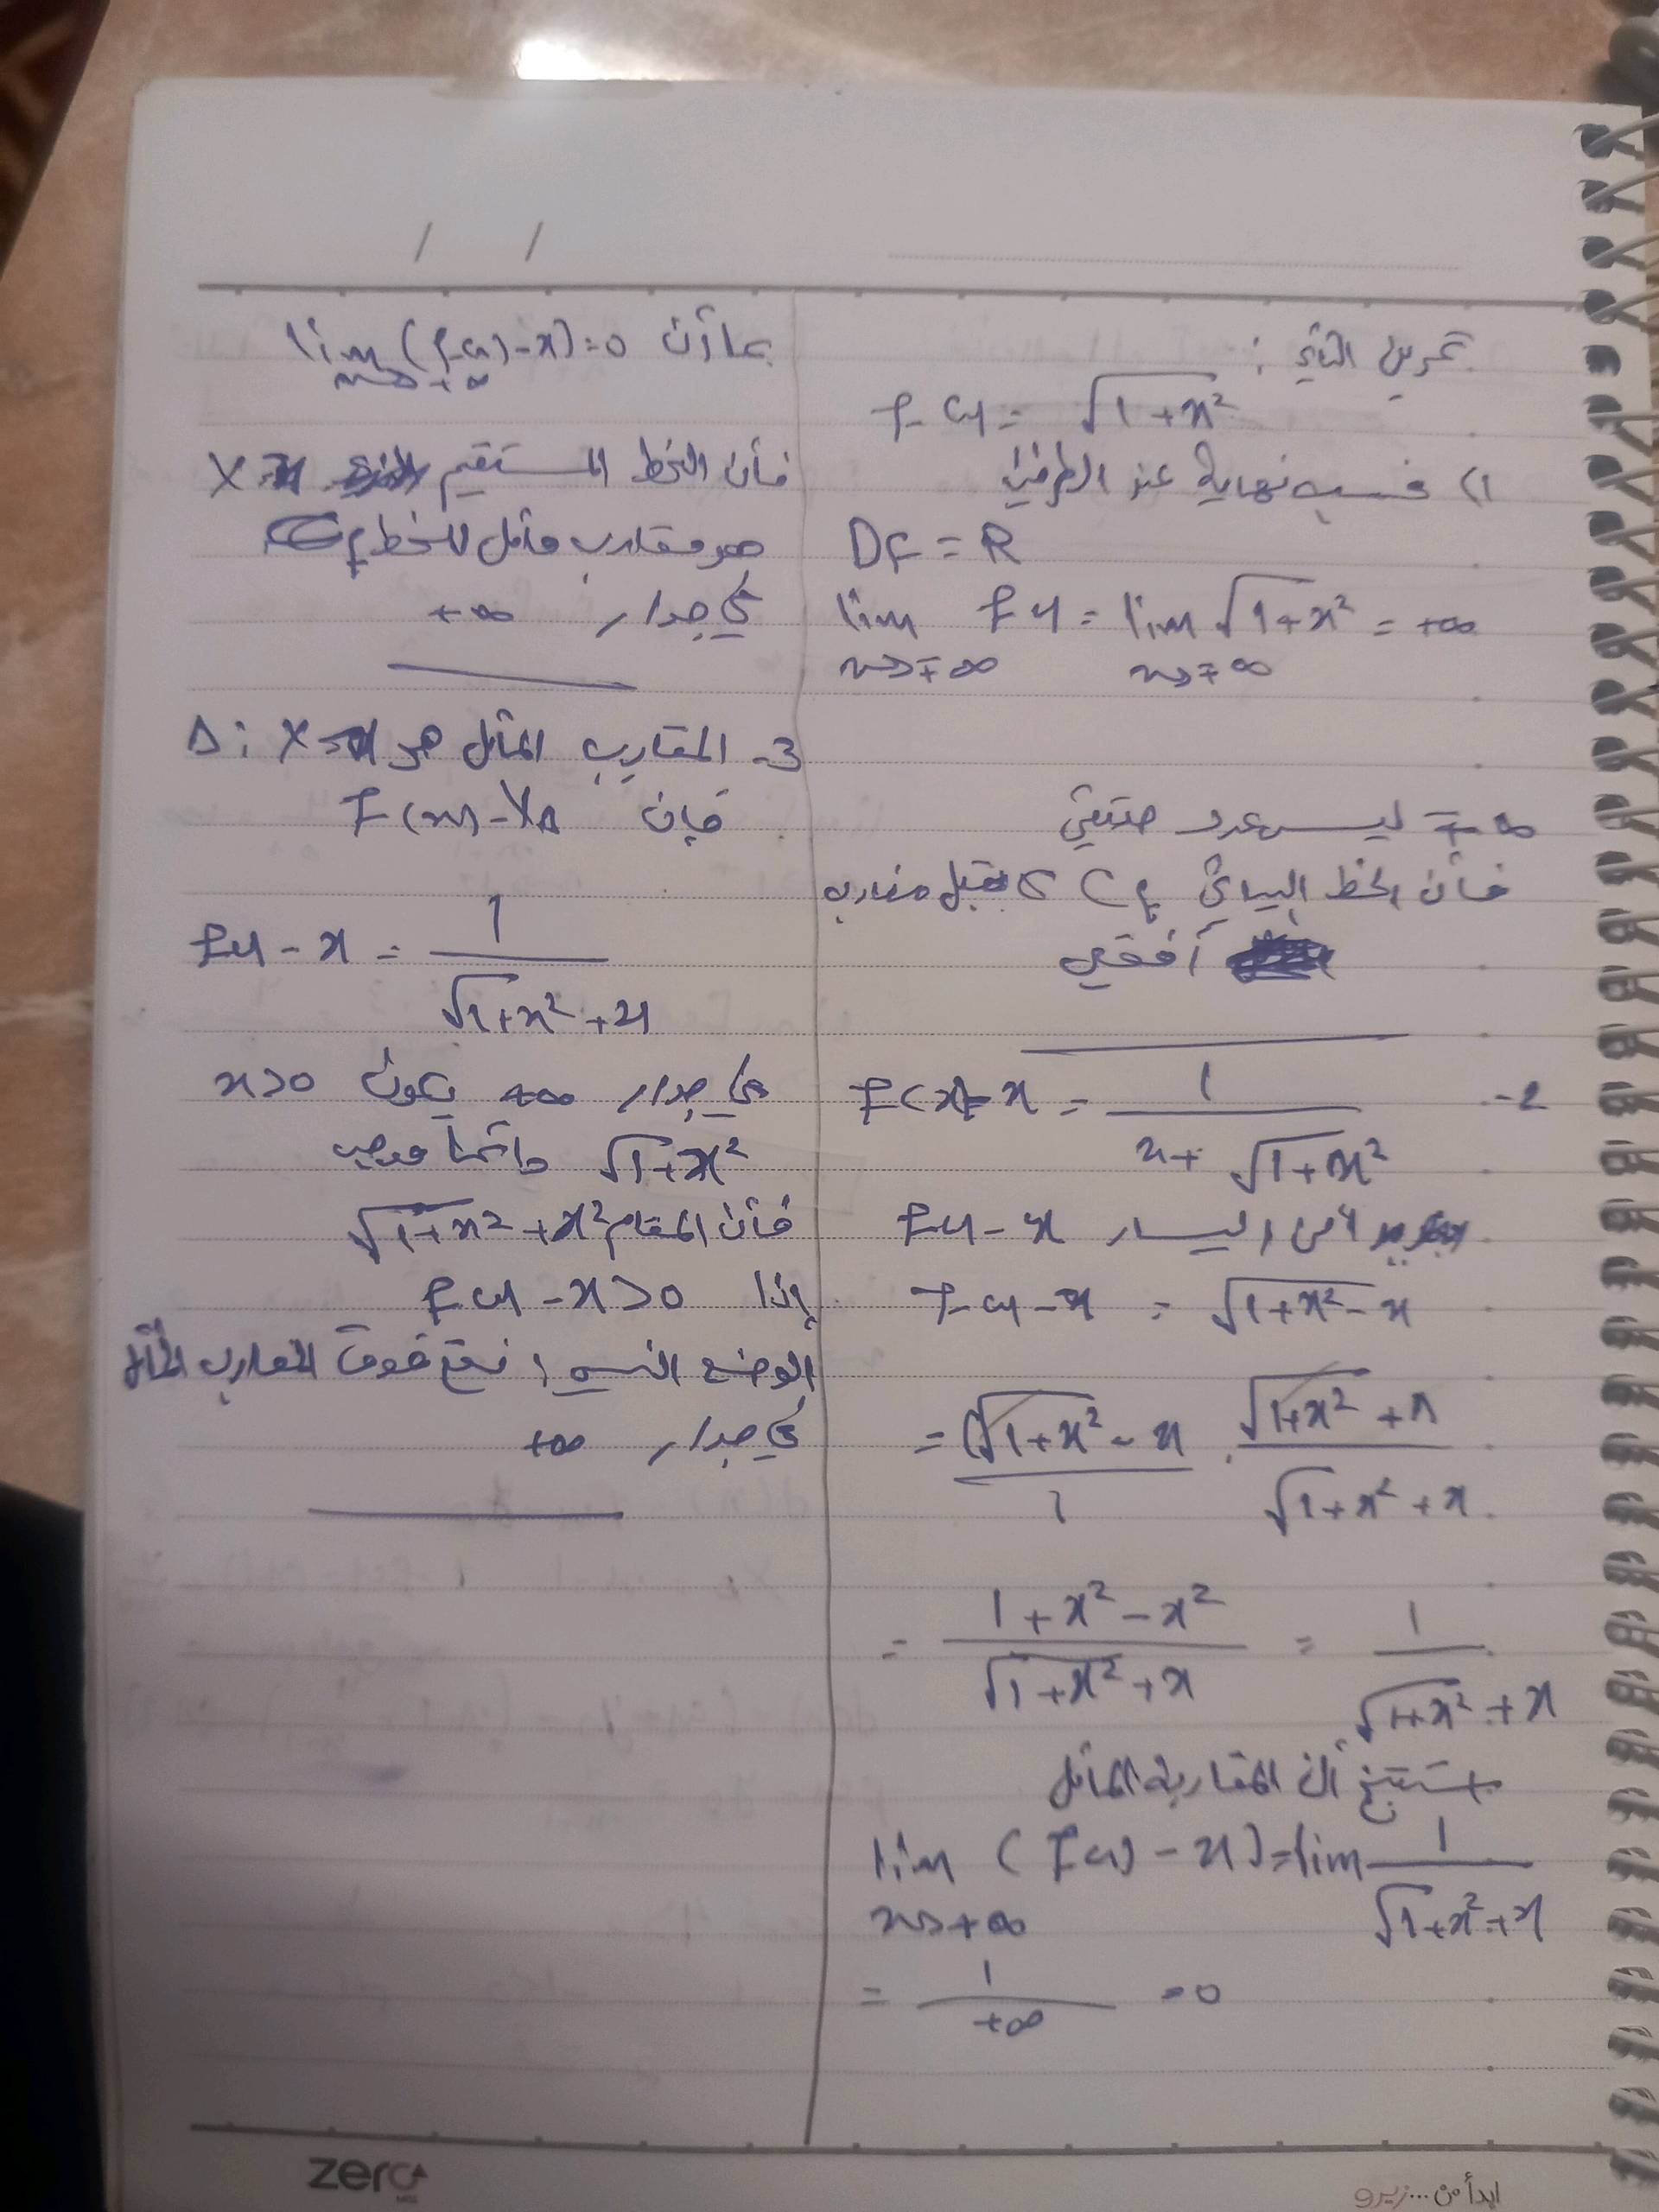 / /
تمرين الثاني :
f(x) = √1+x²
1) نحسب نهاية عند الطرفين
Df = R
lim f(x) = lim √1+x² = +∞
x→∓∞ x→∓∞
∓∞ ليس عدد حقيقي
فأن الخط البياني Cf لا يقبل مقارب
أفقي
2- f(x)-x = 1 / x+√1+x²
من اليسار f(x)-x
f(x)-x = √1+x²-x
= (√1+x² - x / 1 . √1+x² + x / √1+x² + x
= 1+x²-x² / √1+x²+x = 1 / √1+x²+x
نستنتج أن المقارب المائل
lim (f(x)-x) = lim 1 / √1+x²+x
x→+∞
= 1 / +∞ = 0
بما أن lim (f(x)-x)=0
x→+∞
فأن الخط المستقيم
هو مقارب مائل للخط Cf
في جوار +∞
3- المقارب المائل هو Δ:
فإن f(x)-yΔ
f(x)-x = 1 / √1+x²+x
في جوار +∞ يكون x>0
√1+x² دائماً موجب
فأن المقام √1+x²+x²
إذا f(x)-x>0
الوضع النسبي: نقع فوق المقارب المائل
في جوار +∞
zero
ابدأ من...زيرو